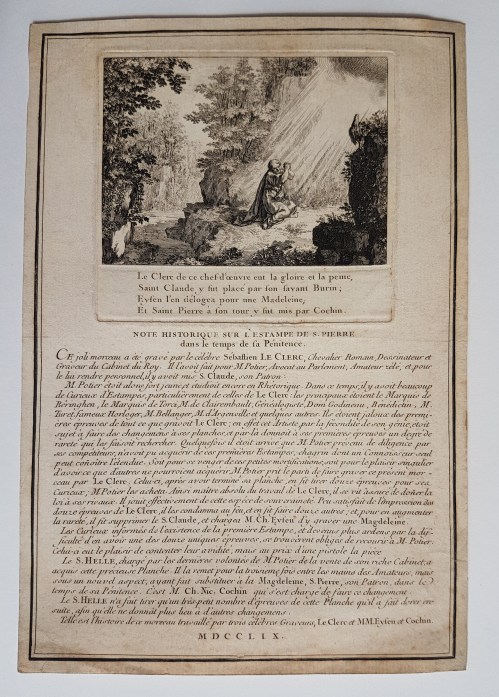 Le Clerc de ce chef-d'œuvre eut la gloire et la peine,
Saint Claude y fut placé par son savant Burin;
Eysen l'en délogea pour une Madeleine,
Et Saint Pierre a son tour y fut mis par Cochin.
NOTE HISTORIQUE SUR L'ESTAMPE DE S. PIERRE
dans le temps de sa Pénitence.
CE joli morceau a été gravé par le célèbre Sébastien LE CLERC, Chevalier Romain, Dessinateur et
Graveur du Cabinet du Roy. Il l'avoit fait pour M. Potier, Avocat au Parlement, Amateur zelé; et pour
le lui rendre personnel, il y avoit mis S. Claude, son Patron.
M. Potier étoit alors fort jeune, et étudioit encore en Rhétorique. Dans ce temps, il y avoit beaucoup
de Curieux d'Estampes, particulierement de celles de Le Clerc: les principaux étoient le Marquis de
Béringhen, le Marquis de Torci, M. de Clairembault, Généalogiste, Dom Bénédictin, M.
Turet, fameux Horloger, M. Bellanger, M. d'Argenville et quelques autres. Ils étoient jaloux des premi-
eres épreuves de tout ce que gravoit Le Clerc; en effet cet Artiste par la fécondité de son génie, étoit
sujet à faire des changemens à ses planches, et par-là donnoit à ses premières épreuves un degré de
rareté qui les faisoit rechercher. Quelquefois il étoit arrivé que M. Potier prévenu de diligence par
ses compétiteurs, n'avoit pu acquérir de ces premières Estampes, chagrin dont un Connoisseur seul
peut connoître l'étendue. Soit pour se venger de ces petites mortifications, soit pour le plaisir singulier
d'avoir ce que d'autres ne pourroient acquérir, M. Potier prit le parti de faire graver ce présent mor-
ceau par Le Clerc. Celui-ci, après avoir terminé sa planche, en fit tirer douze épreuves pour ses
Curieux; M. Potier les acheta. Ainsi maître absolu du travail de Le Clerc, il se vit assuré de donner la
loi à ses rivaux. Il jouit effectivement de cette espece de souveraineté. Peu satisfait de l'impression des
douze épreuves de Le Clerc, il les condamna au feu, et en fit faire douze autres; et, pour en augmenter
la rareté, il fit supprimer le S. Claude, et chargea M. Ch. Eysen d'y graver une Magdeleine.
Les Curieux informés de l'existence de la première Estampe, et des-lors plus ardens par la dif-
ficulté d'en avoir une des douze uniques épreuves, se trouvèrent obligés de recourir à M. Potier.
Celui-ci eut le plaisir de contenter leur avidité, mais au prix d'une pistole la pièce.
Le S. HELLE, chargé par les dernieres volontés de M. Potier de la vente de son riche Cabinet, a
acquis cette précieuse Planche. Il la remet pour la troisieme fois entre les mains des Amateurs, mais
sous un nouvel aspect, ayant fait substituer à la Magdeleine, S. Pierre, son Patron, dans le
temps de sa Pénitence. C'est M. Ch. Nic. Cochin qui s'est chargé de faire ce changement.
Le S. HELLE n'a fait tirer qu'un très petit nombre d'épreuves de cette Planche qu'il a fait dorer en-
suite, afin qu'elle ne donnât plus lieu à d'autres changemens.
Telle est l'histoire de ce morceau travaillé par trois célèbres Graveurs, Le Clerc et MM. Eysen et Cochin.
MDCCLIX.